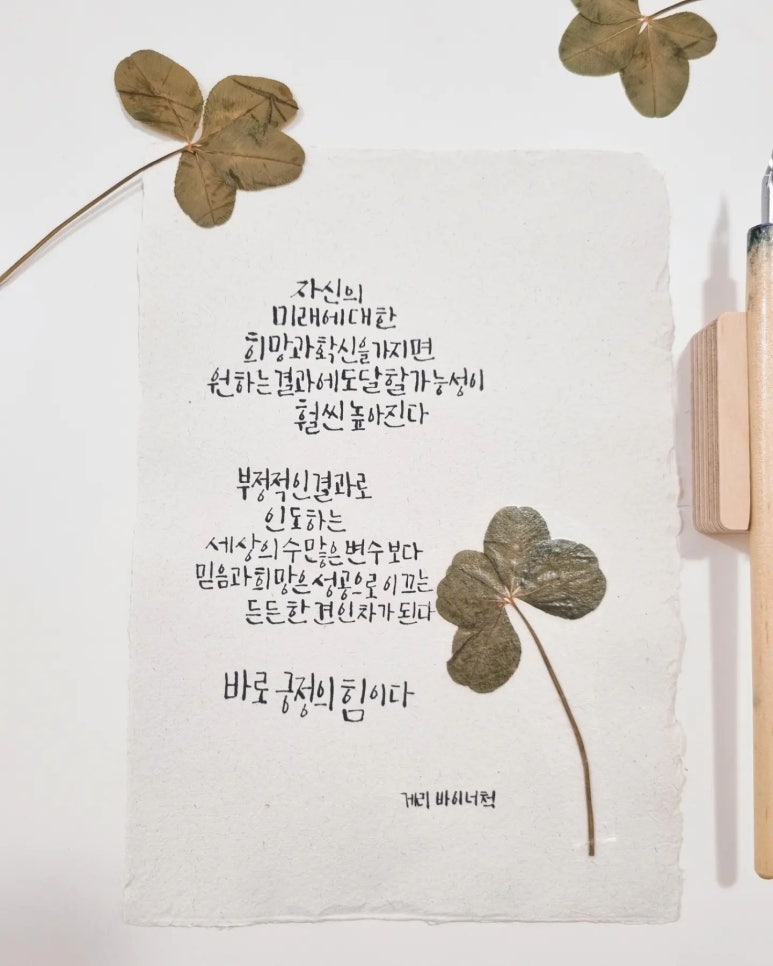 자신의
미래에 대한
희망과 확신을 가지면
원하는 결과에 도달할 가능성이
훨씬 높아진다
부정적인 결과로
인도하는
세상의 수많은 변수보다
믿음과 희망은 성공으로 이끄는
든든한 견인차가 된다
바로 긍정의 힘이다
게리 바이너척